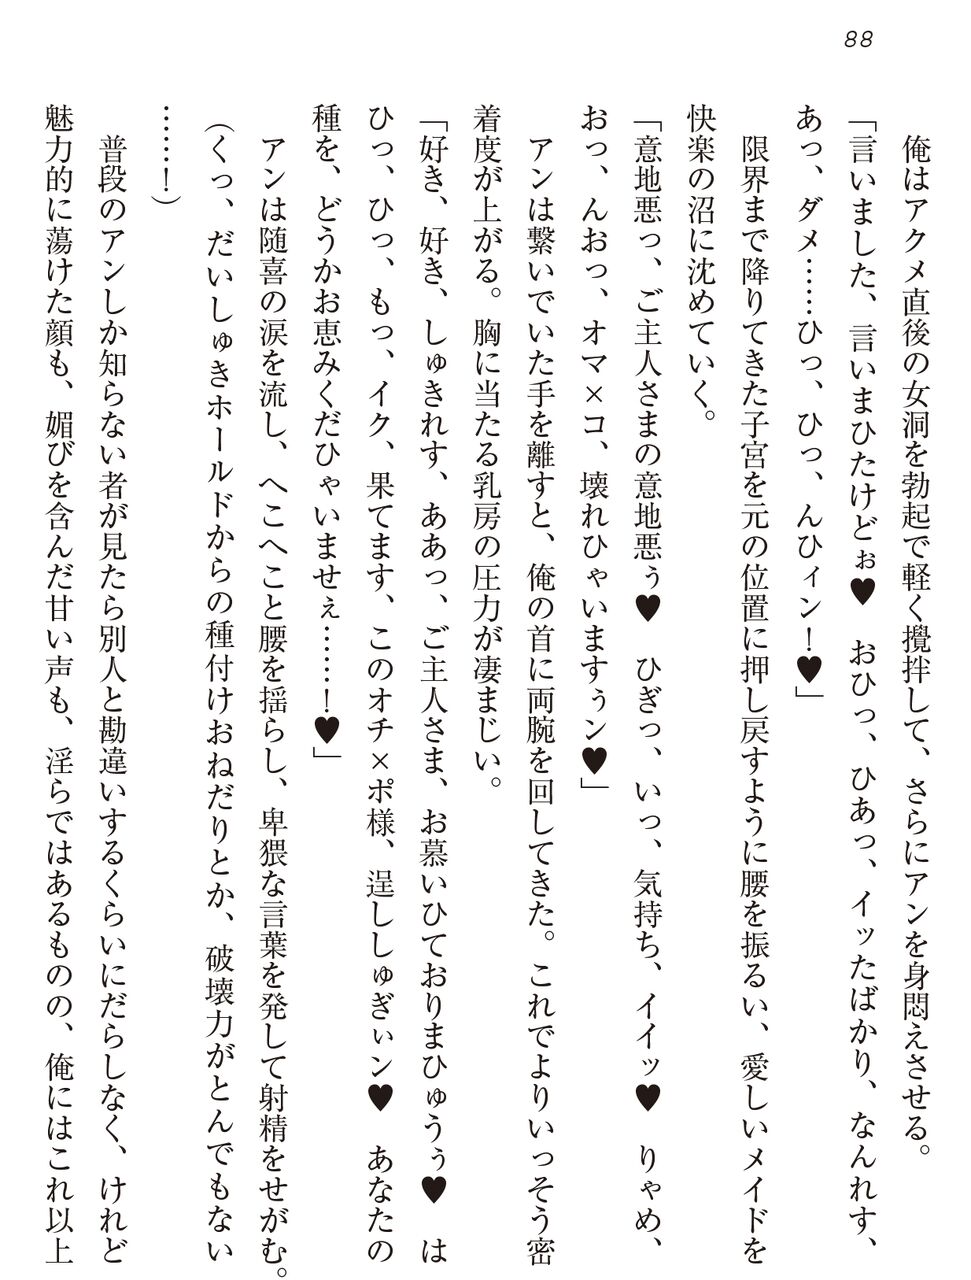 88
　俺はアクメ直後の女洞を勃起で軽く攪拌して、さらにアンを身悶えさせる。
「言いました、言いまひたけどぉ♥　おひっ、ひあっ、イッたばかり、なんれす、
あっ、ダメ……ひっ、ひっ、んひィン！♥」
　限界まで降りてきた子宮を元の位置に押し戻すように腰を振るい、愛しいメイドを
快楽の沼に沈めていく。
「意地悪っ、ご主人さまの意地悪ぅ♥　ひぎっ、いっ、気持ち、イイッ♥　りゃめ、
おっ、んおっ、オマ×コ、壊れひゃいますぅン♥」
　アンは繋いでいた手を離すと、俺の首に両腕を回してきた。これでよりいっそう密
着度が上がる。胸に当たる乳房の圧力が凄まじい。
「好き、好き、しゅきれす、ああっ、ご主人さま、お慕いひておりまひゅうぅ♥　は
ひっ、ひっ、もっ、イク、果てます、このオチ×ポ様、逞ししゅぎぃン♥　あなたの
種を、どうかお恵みくだひゃいませぇ……！♥」
　アンは随喜の涙を流し、へこへこと腰を揺らし、卑猥な言葉を発して射精をせがむ。
（くっ、だいしゅきホールドからの種付けおねだりとか、破壊力がとんでもない
……！）
　普段のアンしか知らない者が見たら別人と勘違いするくらいにだらしなく、けれど
魅力的に蕩けた顔も、媚びを含んだ甘い声も、淫らではあるものの、俺にはこれ以上